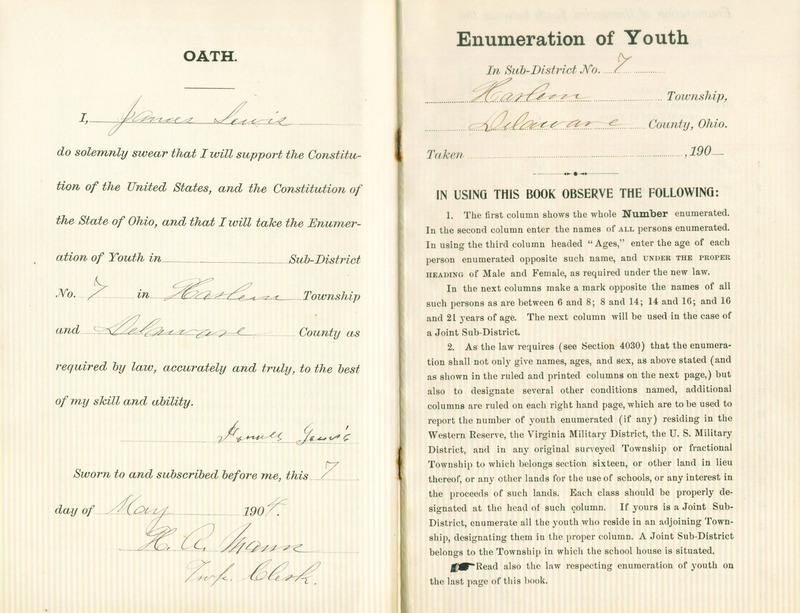 OATH.
I, James Lewis
do solemnly swear that I will support the Constitu-
tion of the United States, and the Constitution of
the State of Ohio, and that I will take the Enumer-
ation of Youth in Sub-District
No. 7 in Harlem Township
and Delaware County as
required by law, accurately and truly, to the best
of my skill and ability.
Sworn to and subscribed before me, this 7
day of May 1904.
H. A. Mann
Twp. Clerk.
Enumeration of Youth
In Sub-District No. 7
Harlem Township,
Delaware County, Ohio.
Taken , 190
IN USING THIS BOOK OBSERVE THE FOLLOWING:
1. The first column shows the whole Number enumerated.
In the second column enter the names of ALL persons enumerated.
In using the third column headed "Ages," enter the age of each
person enumerated opposite such name, and UNDER THE PROPER
HEADING of Male and Female, as required under the new law.
In the next columns make a mark opposite the names of all
such persons as are between 6 and 8; 8 and 14; 14 and 16; and 16
and 21 years of age. The next column will be used in the case of
a Joint Sub-District.
2. As the law requires (see Section 4030) that the enumera-
tion shall not only give names, ages, and sex, as above stated (and
as shown in the ruled and printed columns on the next page,) but
also to designate several other conditions named, additional
columns are ruled on each right hand page, which are to be used to
report the number of youth enumerated (if any) residing in the
Western Reserve, the Virginia Military District, the U. S. Military
District, and in any original surveyed Township or fractional
Township to which belongs section sixteen, or other land in lieu
thereof, or any other lands for the use of schools, or any interest in
the proceeds of such lands. Each class should be properly de-
signated at the head of such column. If yours is a Joint Sub-
District, enumerate all the youth who reside in an adjoining Town-
ship, designating them in the proper column. A Joint Sub-District
belongs to the Township in which the school house is situated.
Read also the law respecting enumeration of youth on
the last page of this book.